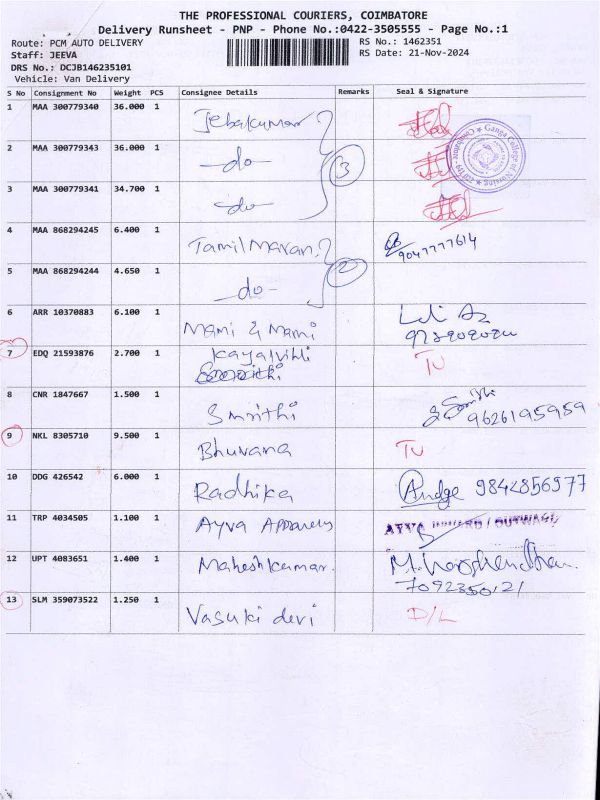 THE PROFESSIONAL COURIERS, COIMBATORE
Delivery Runsheet - PNP - Phone No.:0422-3505555 - Page No.:1
Route: PCM AUTO DELIVERY RS No.: 1462351
Staff: JEEVA RS Date: 21-Nov-2024
DRS No.: DCJB146235101
Vehicle: Van Delivery
S No Consignment No Weight PCS Consignee Details Remarks Seal & Signature
1 MAA 300779340 36.000 1 Jebakumar
2 MAA 300779343 36.000 1 -do- 3
3 MAA 300779341 34.700 1 -do-
Ganga College of Nursing
4 MAA 868294245 6.400 1 Tamil Maran 9047777614
5 MAA 868294244 4.650 1 -do- 2
6 ARR 10370883 6.100 1 Mami & Mami
7 EDQ 21593876 2.700 1 Kayalvihli TU
8 CNR 1847667 1.500 1 Smrithi 9626195959
9 NKL 8305710 9.500 1 Bhuvana TU
10 DDG 426542 6.000 1 Radhika 9842856977
11 TRP 4034505 1.100 1 Ayva Apparels AYVA INWARD / OUTWARD
12 UPT 4083651 1.400 1 Maheshkumar.
13 SLM 359073522 1.250 1 Vasuki devi D/L